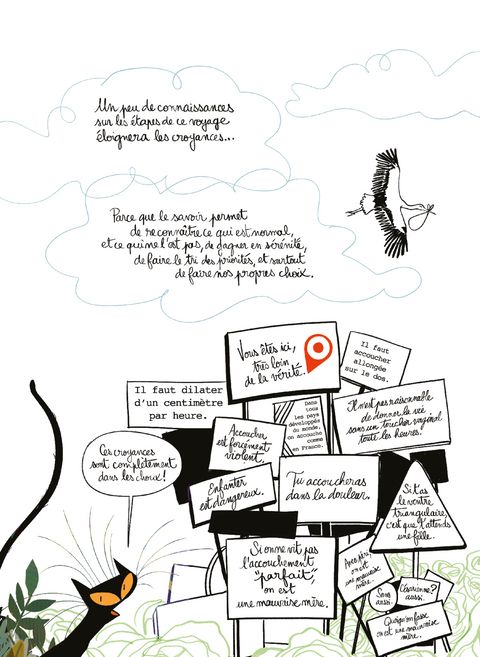 Un peu de connaissances
sur les étapes de ce voyage
éloignera les croyances...
Parce que le savoir permet
de reconnaître ce qui est normal,
et ce qui ne l'est pas, de gagner en sérénité,
de faire le tri des priorités, et surtout
de faire nos propres choix.
Vous êtes ici,
très loin
de la vérité.
Il faut
accoucher
allongée
sur le dos.
Il faut dilater
d'un centimètre
par heure.
Dans
tous
les pays
développés
du monde,
on accouche
comme
en France.
Il n'est pas raisonnable
de donner la vie
sans un toucher vaginal
toutes les heures.
Accoucher
est forcément
violent.
Ces croyances
sont complètement
dans les choux!
Enfanter
est dangereux.
Tu accoucheras
dans la douleur.
Si t'as
le ventre
triangulaire,
c'est que t'attends
une fille.
Si on ne vit pas
l'accouchement
"parfait",
on est
une mauvaise mère.
Avec péri,
on est
une mauvaise
mère.
Sans
aussi.
Césarienne?
aussi.
Quoiqu'on fasse
on est une mauvaise
mère.